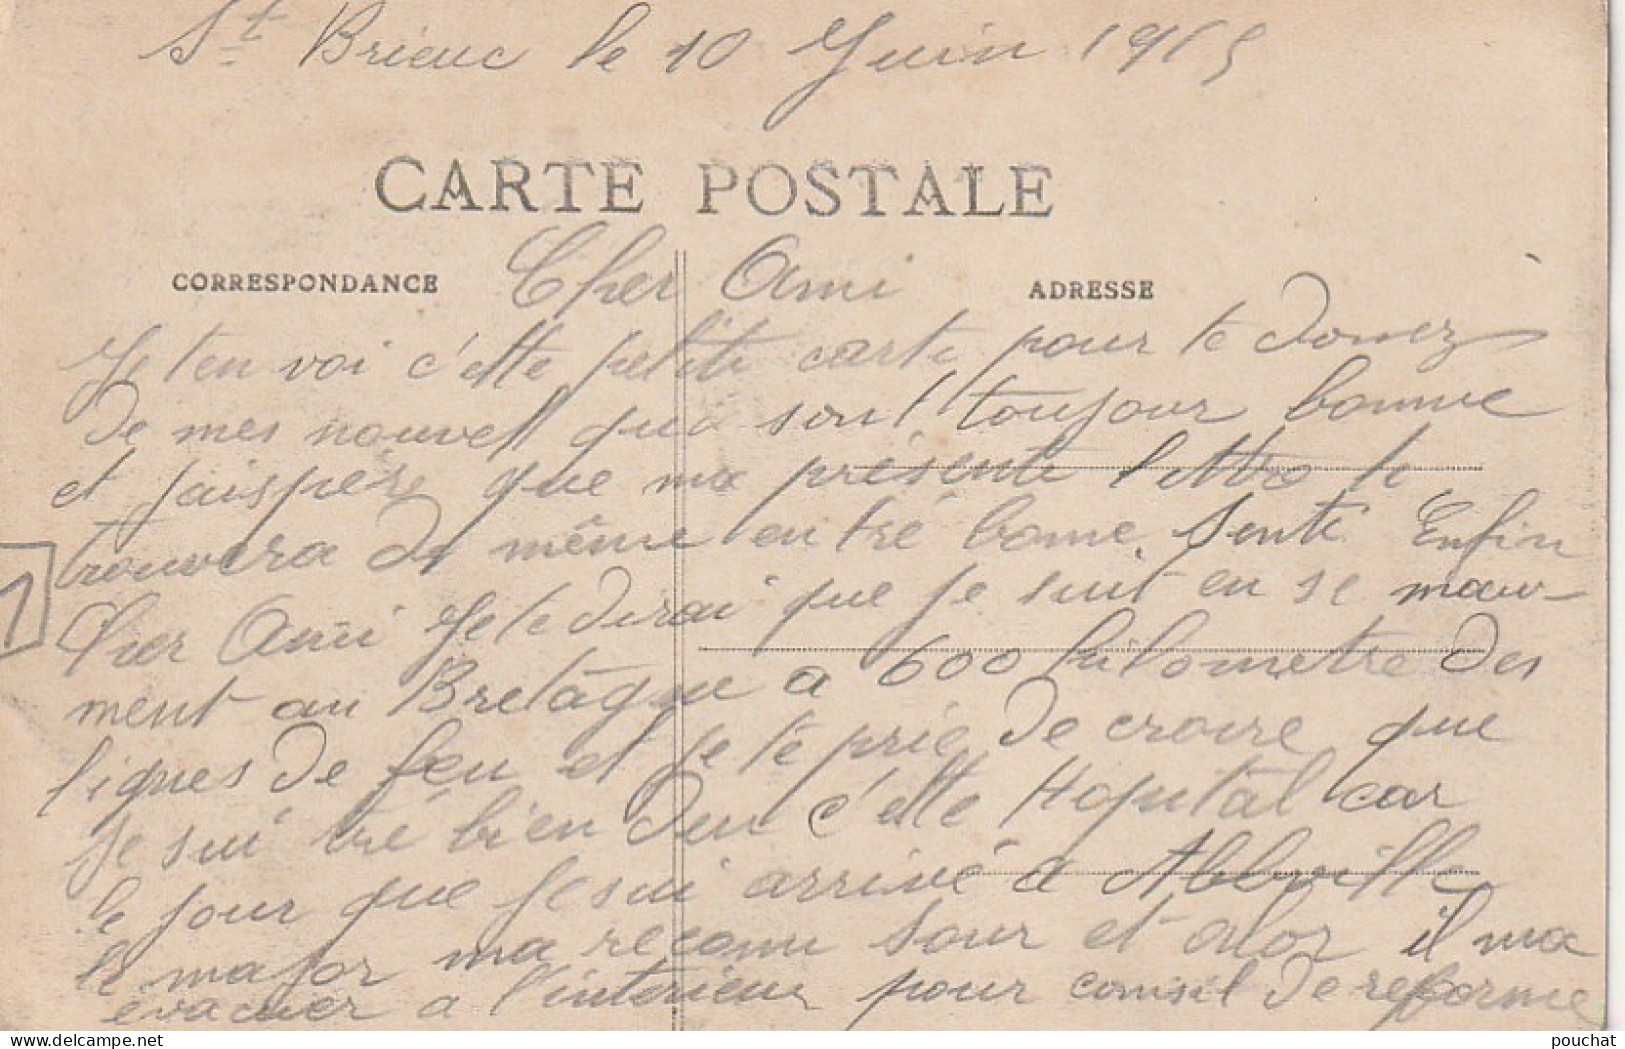 St Brieuc le 10 Juin 1915
CARTE POSTALE
CORRESPONDANCE
ADRESSE
Cher Ami
Je ten voi c'ette petite carte pour te donez
de mes nouvell qui sont toujour bonne
et jaispère que ma présente lettre te
trouvera de même en tré bonne Senté Enfin
Cher Ami Je te dirai que je suit en se mau-
ment au Bretâgne a 600 kilometre des
lignes de feu et je te prie de croire que
je sui tré bien den c'ette Hopital car
le jour que je sui arrivé a Abbeville
le major ma reconu sour et alor il ma
évacuer a l'interieur pour conseil de reforme
1
delcampe.net
pouchat